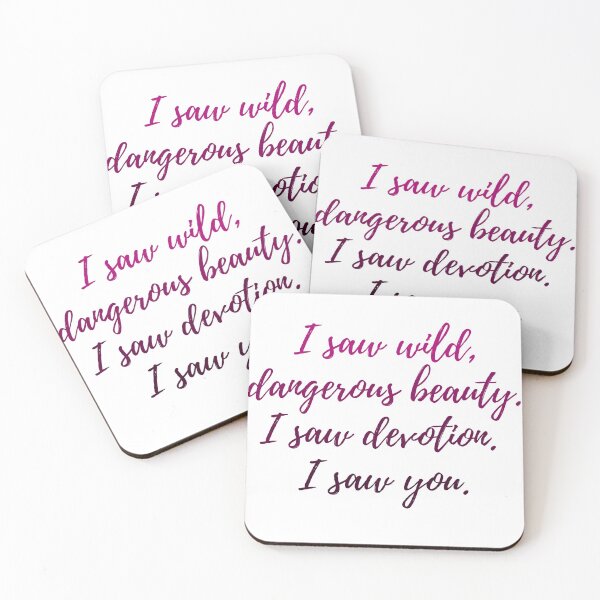 I saw wild,
dangerous beaut
I devotio
I saw wild,
dangerous beauty.
I saw devotion.
I
I saw wild,
dangerous beauty.
I saw devotion.
I saw y
I saw wild,
dangerous beauty.
I saw devotion.
I saw you.